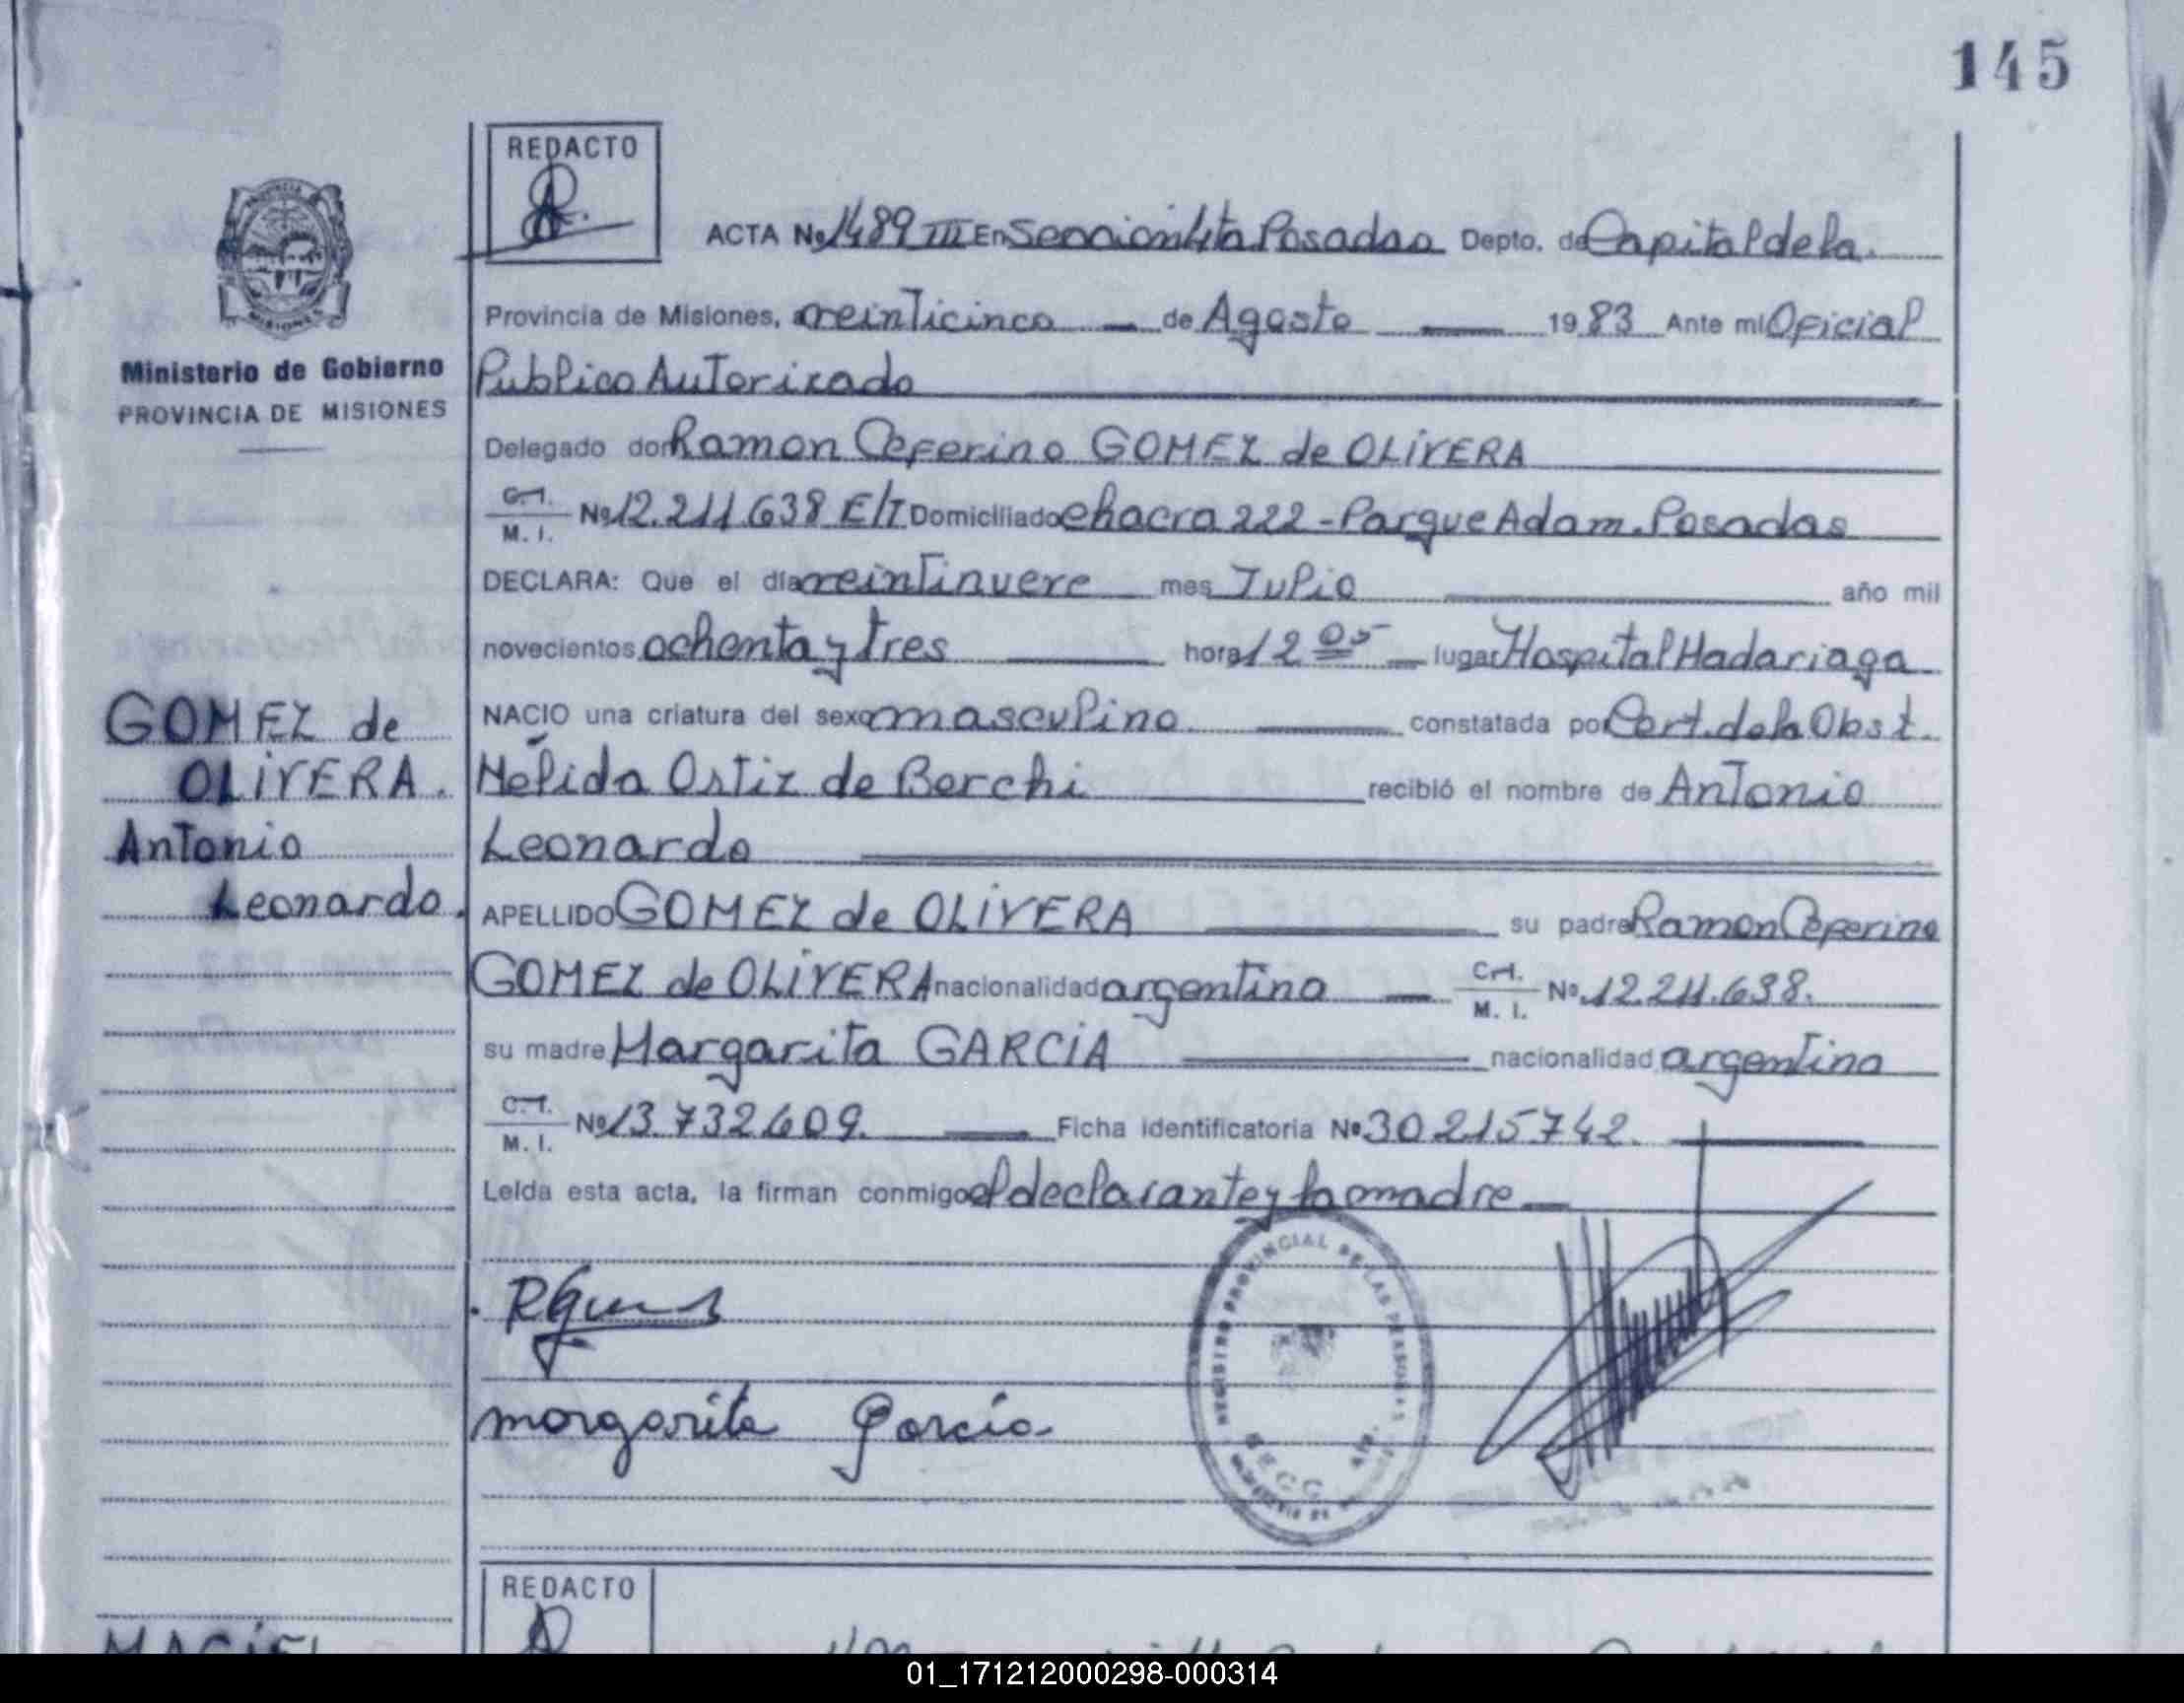 145
REDACTO
ACTA Nº 1489 III En Seccion 4ta Posadas Depto. de Capital de la
Provincia de Misiones, a veinticinco de Agosto 1983 Ante mi Oficial
Ministerio de Gobierno
PROVINCIA DE MISIONES
Publico Autorizado
Delegado don Ramon Ceferino GOMEZ de OLIVERA
C. I. / M. I. Nº 12.211.638 E/T Domiciliado chacra 222 - Parque Adam. Posadas
DECLARA: Que el día veintinueve mes Julio año mil
novecientos ochenta y tres hora 12 05 lugar Hospital Madariaga
NACIO una criatura del sexo masculino constatada por Cert. de la Obst.
Nélida Ortiz de Berchi recibió el nombre de Antonio
Leonardo
GOMEZ de
OLIVERA.
Antonio
Leonardo.
APELLIDO GOMEZ de OLIVERA su padre Ramon Ceferino
GOMEZ de OLIVERA nacionalidad argentino C. I. / M. I. Nº 12.211.638.
su madre Margarita GARCIA nacionalidad argentina
C. I. / M. I. Nº 13.732.609. Ficha identificatoria Nº 30215742.
Leída esta acta, la firman conmigo el declarante y la madre
margarita Garcia
REGISTRO PROVINCIAL DE LAS PERSONAS
REDACTO
MACIEL
01_171212000298-000314